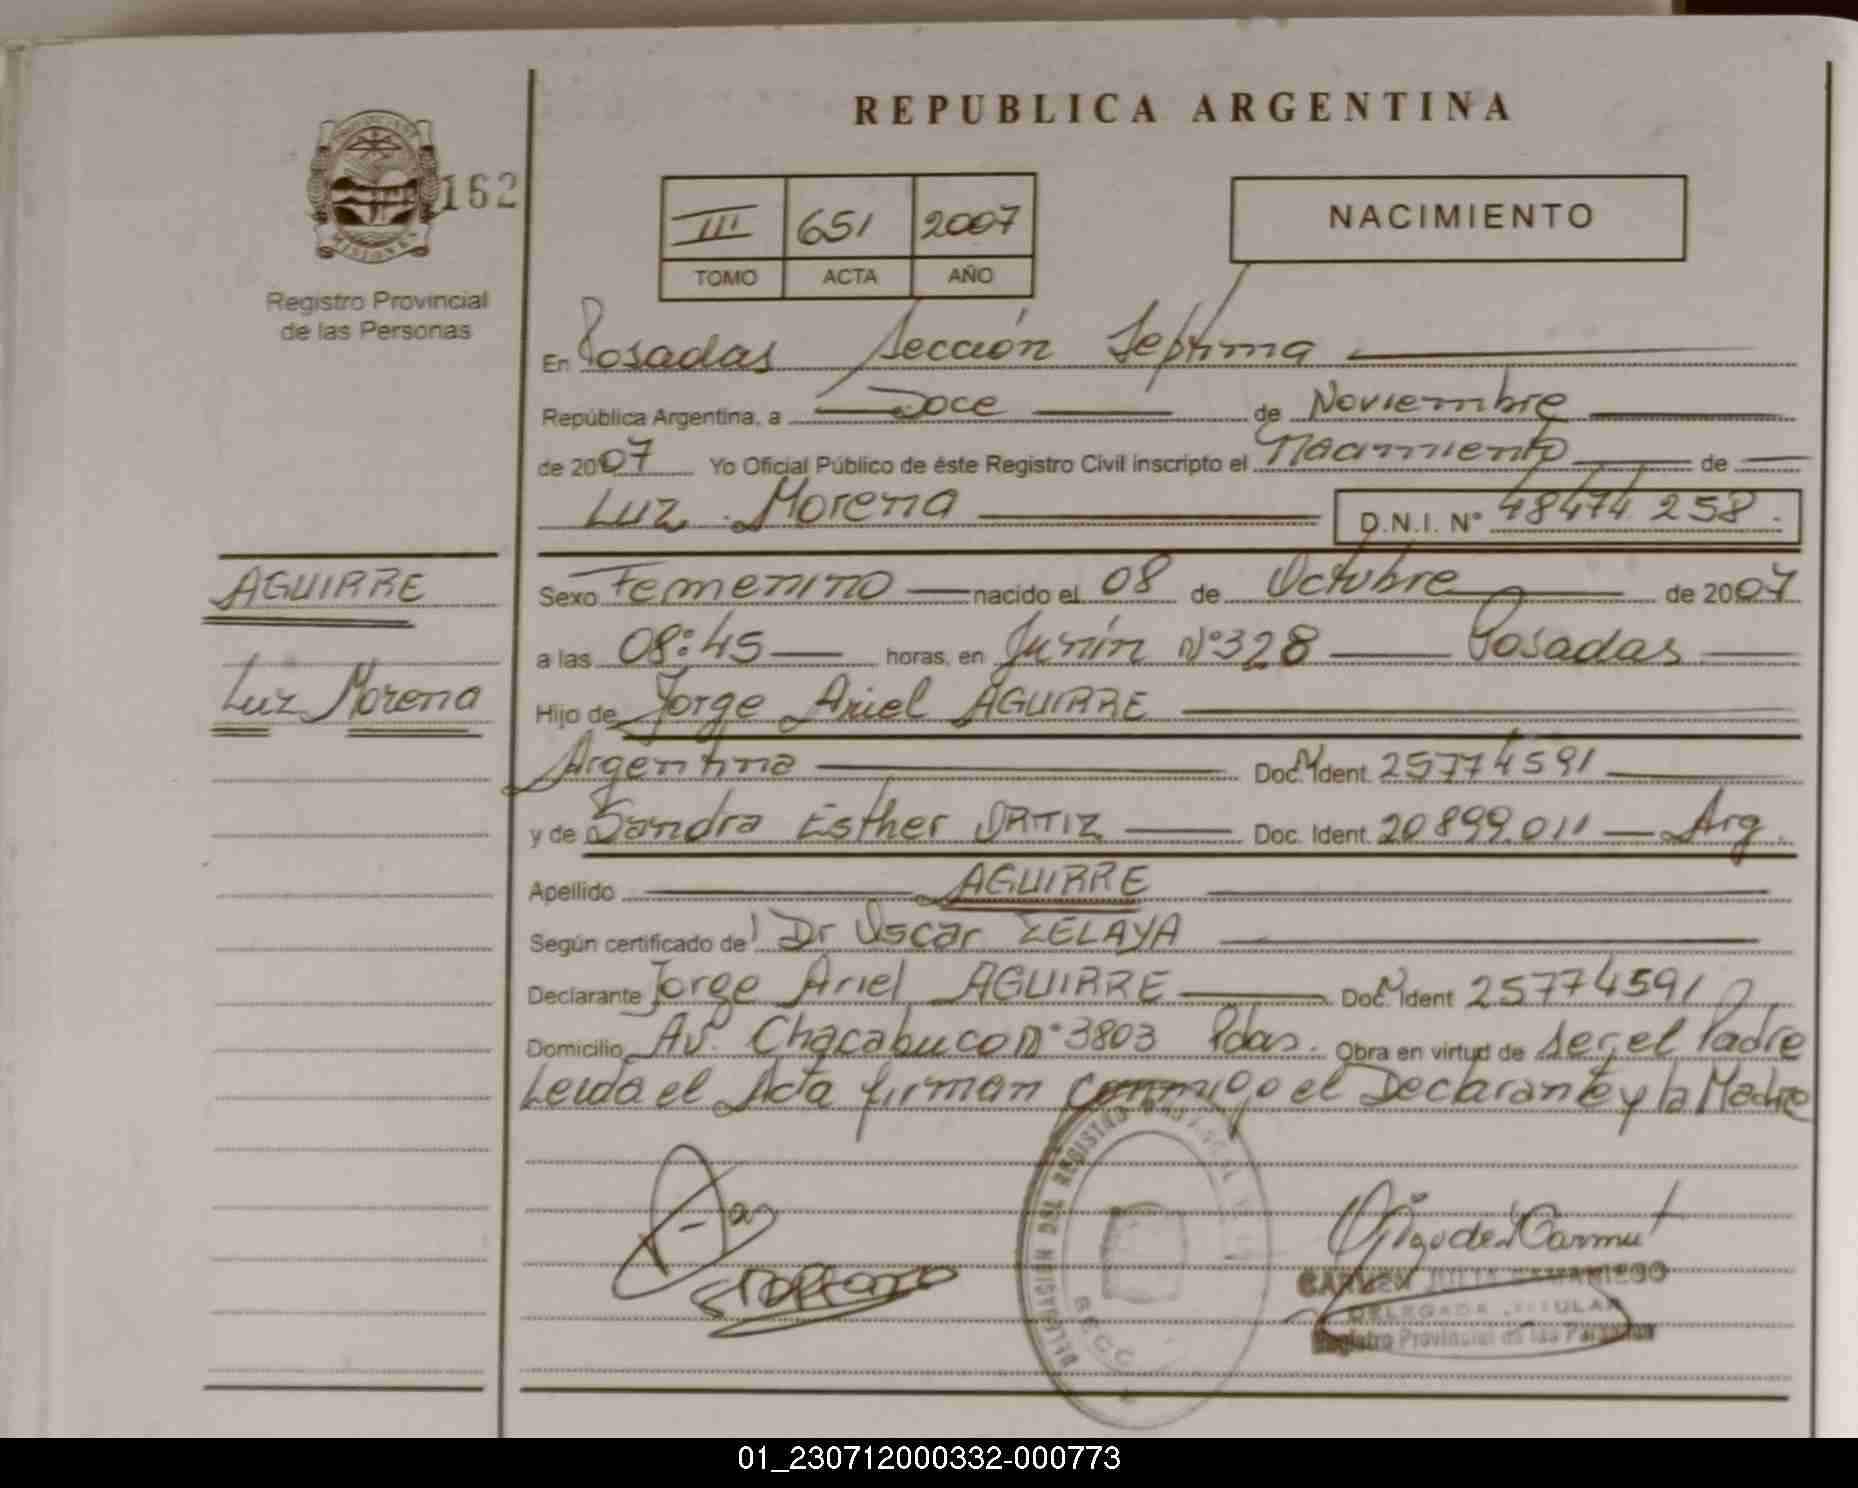 REPUBLICA ARGENTINA
162
III 651 2007
TOMO ACTA AÑO
NACIMIENTO
MISIONES
Registro Provincial
de las Personas
En Posadas Sección Septima
República Argentina, a Doce de Noviembre
de 2007 Yo Oficial Público de éste Registro Civil inscripto el Nacimiento de
Luz Morena D.N.I. N° 48474 258.
AGUIRRE
Luz Morena
Sexo Femenino nacido el 08 de Octubre de 2007
a las 08:45 horas, en Junín N°328 Posadas
Hijo de Jorge Ariel AGUIRRE
Argentina Doc. Ident. 25774591
y de Sandra Esther ORTIZ Doc. Ident. 20899.011 Arg.
Apellido AGUIRRE
Según certificado de Dr Oscar ZELAYA
Declarante Jorge Ariel AGUIRRE Doc. Ident 25774591
Domicilio Av. Chacabuco N° 3803 Pdas. Obra en virtud de ser el Padre
Leida el Acta firman conmigo el Declarante y la Madre
DELEGACION DEL REGISTRO
SECC
CARMEN JULIA SAMANIEGO
DELEGADA TITULAR
Registro Provincial de las Personas
01_230712000332-000773